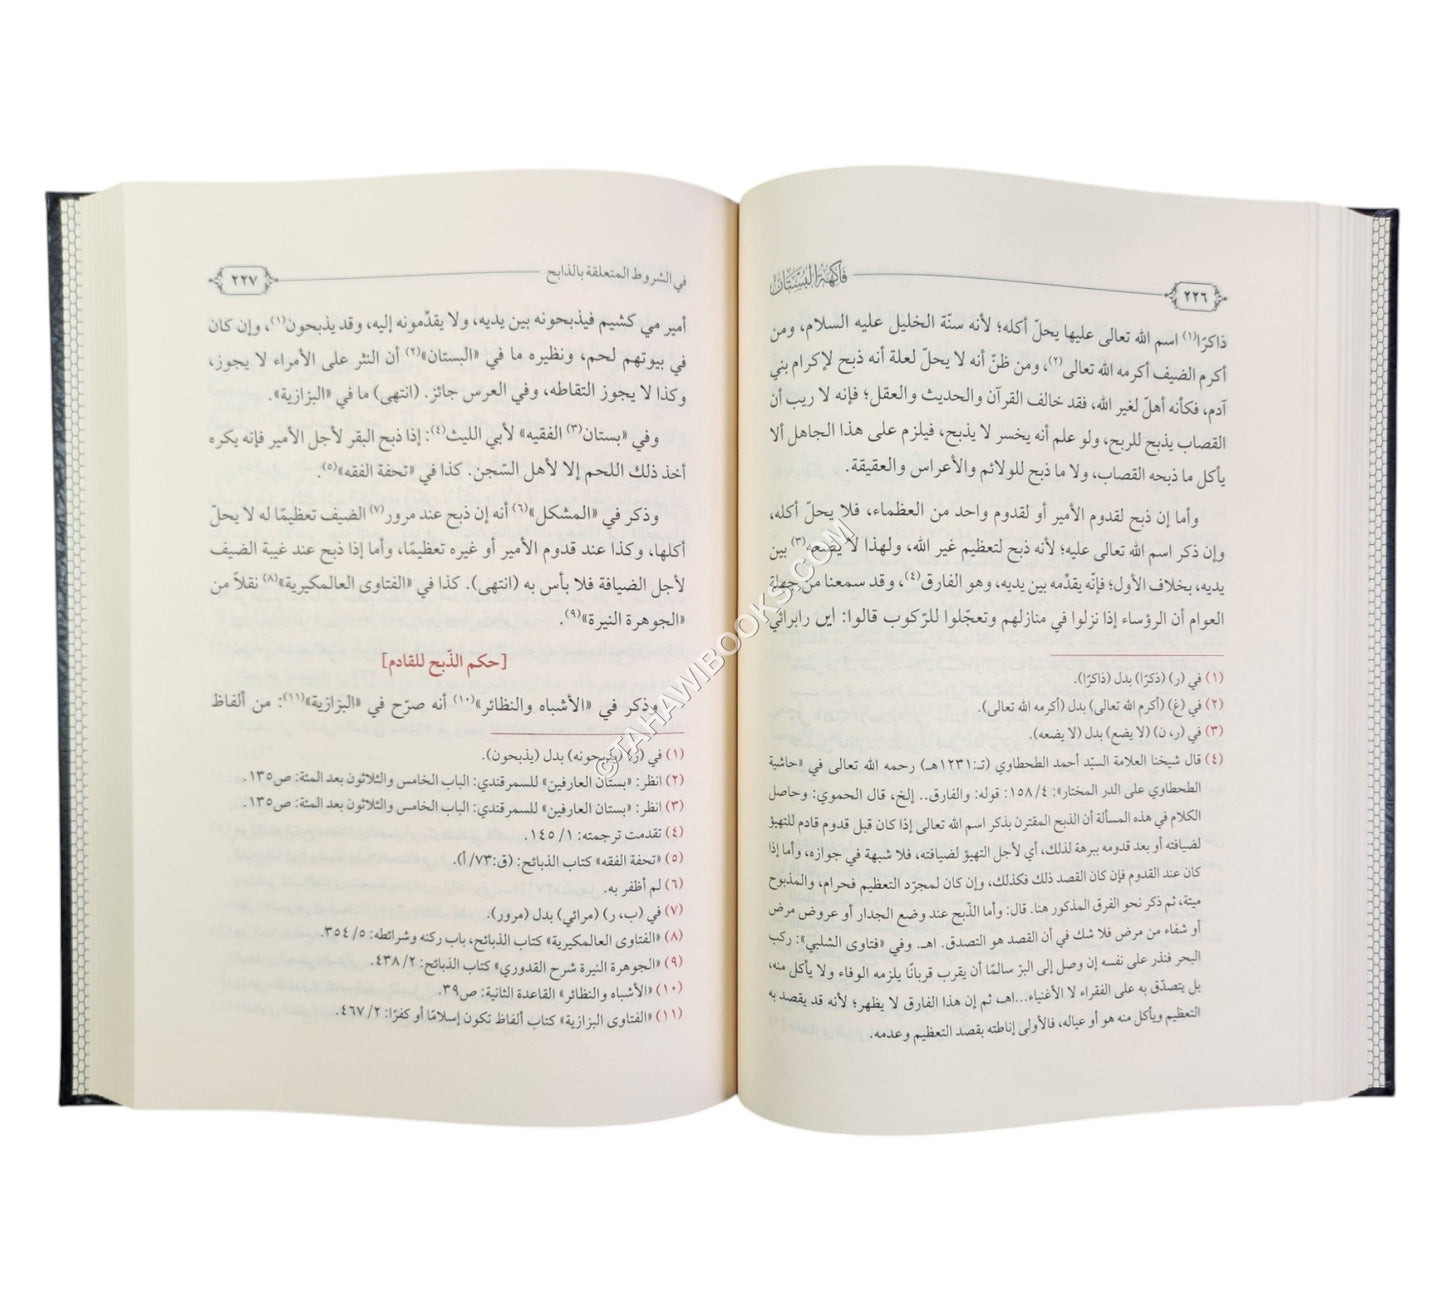 ٢٢٦
فاكهة البستان
ذاكرًا(١) اسم الله تعالى عليها يحلّ أكله؛ لأنه سنّة الخليل عليه السلام، ومن
أكرم الضيف أكرمه الله تعالى(٢)، ومن ظنّ أنه لا يحلّ لعلة أنه ذبح لإكرام بني
آدم، فكأنه أهلّ لغير الله، فقد خالف القرآن والحديث والعقل؛ فإنه لا ريب أن
القصاب يذبح للربح، ولو علم أنه يخسر لا يذبح، فيلزم على هذا الجاهل ألا
يأكل ما ذبحه القصاب، ولا ما ذبح للولائم والأعراس والعقيقة.
وأما إن ذبح لقدوم الأمير أو لقدوم واحد من العظماء، فلا يحلّ أكله،
وإن ذكر اسم الله تعالى عليه؛ لأنه ذبح لتعظيم غير الله، ولهذا لا يضعه(٣) بين
يديه، بخلاف الأول؛ فإنّه يقدّمه بين يديه، وهو الفارق(٤)، وقد سمعنا من جهلة
العوام أن الرؤساء إذا نزلوا في منازلهم وتعجّلوا للرّكوب قالوا: اين رابرائي
(١) في (ر) (ذكرًا) بدل (ذاكرًا).
(٢) في (غ) (أكرم الله تعالى) بدل (أكرمه الله تعالى).
(٣) في (ر، ن) (لا يضع) بدل (لا يضعه).
(٤) قال شيخنا العلامة السيّد أحمد الطحطاوي (تـ:١٢٣١هـ) رحمه الله تعالى في «حاشية
الطحطاوي على الدر المختار»: ٤/ ١٥٨: قوله: والفارق.. إلخ، قال الحموي: وحاصل
الكلام في هذه المسألة أن الذبح المقترن بذكر اسم الله تعالى إذا كان قبل قدوم قادم للتهيؤ
لضيافته أو بعد قدومه ببرهة لذلك، أي لأجل التهيؤ لضيافته، فلا شبهة في جوازه، وأما إذا
كان عند القدوم فإن كان القصد ذلك فكذلك، وإن كان لمجرّد التعظيم فحرام، والمذبوح
ميتة، ثم ذكر نحو الفرق المذكور هنا. قال: وأما الذّبح عند وضع الجدار أو عروض مرض
أو شفاء من مرض فلا شك في أن القصد هو التصدق. اهـ. وفي «فتاوى الشلبي»: ركب
البحر فنذر على نفسه إن وصل إلى البرّ سالمًا أن يقرب قربانًا يلزمه الوفاء ولا يأكل منه،
بل يتصدّق به على الفقراء لا الأغنياء...اهـ ثم إن هذا الفارق لا يظهر؛ لأنه قد يقصد به
التعظيم ويأكل منه هو أو عياله، فالأولى إناطته بقصد التعظيم وعدمه.
في الشروط المتعلقة بالذابح
٢٢٧
أمير مي كشيم فيذبحونه بين يديه، ولا يقدّمونه إليه، وقد يذبحون(١)، وإن كان
في بيوتهم لحم، ونظيره ما في «البستان»(٢) أن النثر على الأمراء لا يجوز،
وكذا لا يجوز التقاطه، وفي العرس جائز. (انتهى) ما في «البزازية».
وفي «بستان(٣) الفقيه» لأبي الليث(٤): إذا ذبح البقر لأجل الأمير فإنه يكره
أخذ ذلك اللحم إلا لأهل السّجن. كذا في «تحفة الفقه»(٥).
وذكر في «المشكل»(٦) أنه إن ذبح عند مرور(٧) الضيف تعظيمًا له لا يحلّ
أكلها، وكذا عند قدوم الأمير أو غيره تعظيمًا، وأما إذا ذبح عند غيبة الضيف
لأجل الضيافة فلا بأس به (انتهى). كذا في «الفتاوى العالمكيرية»(٨) نقلاً من
«الجوهرة النيرة»(٩).
[حكم الذّبح للقادم]
وذكر في «الأشباه والنظائر»(١٠) أنه صرّح في «البزازية»(١١): من ألفاظ
(١) في (ر) (يذبحونه) بدل (يذبحون).
(٢) انظر: «بستان العارفين» للسمرقندي: الباب الخامس والثلاثون بعد المئة: ص١٣٥.
(٣) انظر: «بستان العارفين» للسمرقندي: الباب الخامس والثلاثون بعد المئة: ص١٣٥.
(٤) تقدمت ترجمته: ١/ ١٤٥.
(٥) «تحفة الفقه» كتاب الذبائح: (ق:٧٣/أ).
(٦) لم أظفر به.
(٧) في (ب، ر) (مرائي) بدل (مرور).
(٨) «الفتاوى العالمكيرية» كتاب الذبائح، باب ركنه وشرائطه: ٥/ ٣٥٤.
(٩) «الجوهرة النيرة شرح القدوري» كتاب الذبائح: ٢/ ٤٣٨.
(١٠) «الأشباه والنظائر» القاعدة الثانية: ص٣٩.
(١١) «الفتاوى البزازية» كتاب ألفاظ تكون إسلامًا أو كفرًا: ٢/ ٤٦٧.
©TAHAWIBOOKS.COM